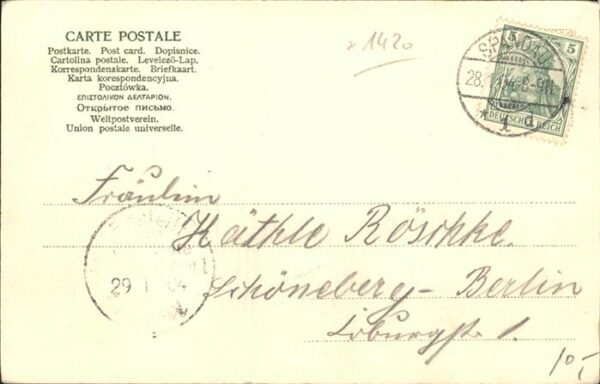 CARTE POSTALE
Postkarte. Post card. Dopisnice.
Cartolina postale. Levelező-Lap.
Korrespondenzkarte. Briefkaart.
Karta korespondencyjna.
Pocztówka.
ΕΠΙΣΤΟΛΙΚΟΝ ΔΕΛΤΑΡΙΟΝ.
Открытое письмо.
Weltpostverein.
Union postale universelle.
1420
5 5
DEUTSCHES REICH
SPANDAU
28.
8-9N
* 1 d
Fräulein
Käthe Röschke.
Schöneberg-Berlin
1.
29 1 04
10,-